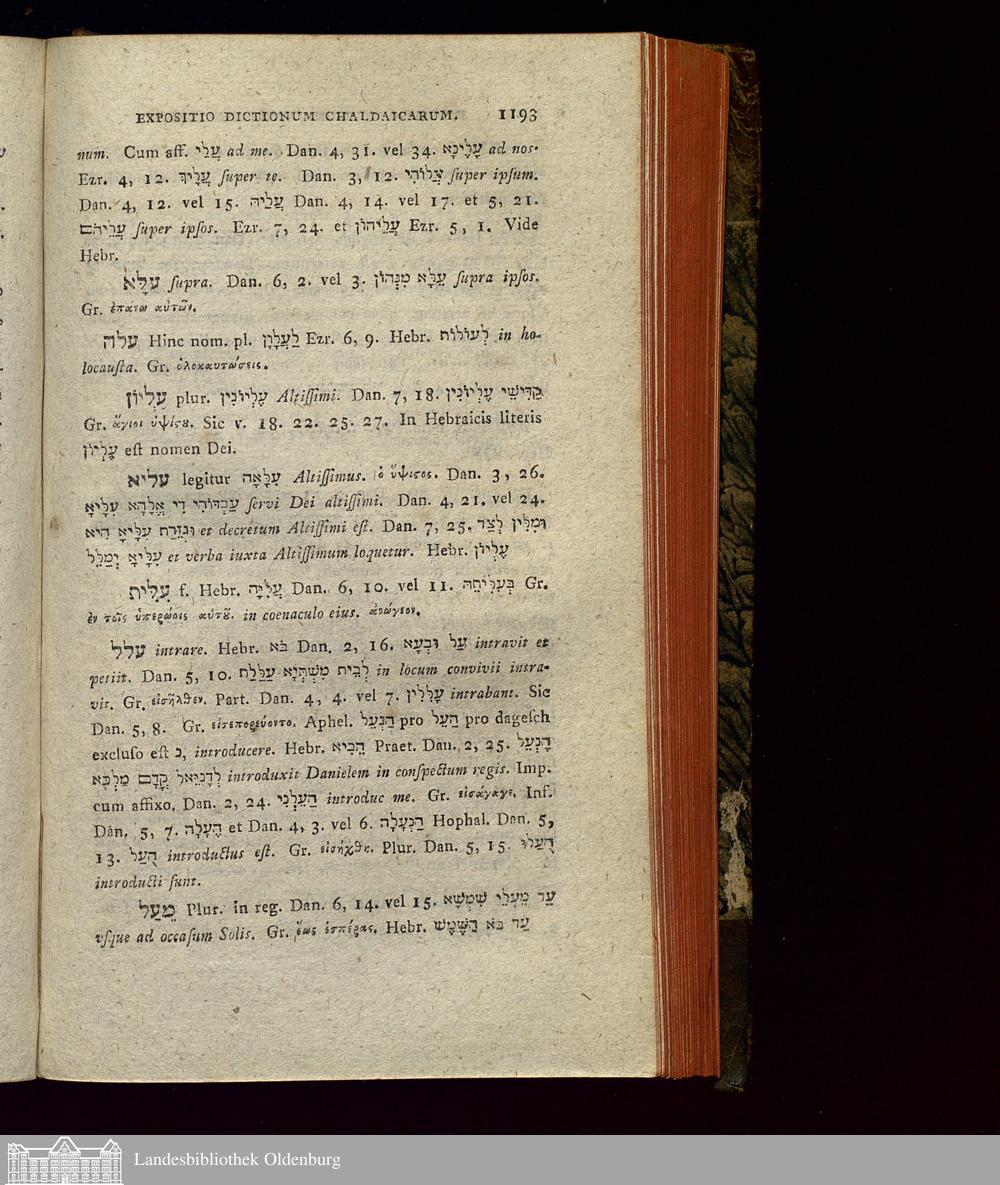 EXPOSITIO DICTIONUM CHALDAICARUM. 1193
num. Cum aff. עֲלַי ad me. Dan. 4, 31. vel 34. עֲלֶינָא ad nos.
Ezr. 4, 12. עֲלָיךְ ſuper te. Dan. 3, 12. עֲלוֹהִי ſuper ipſum.
Dan. 4, 12. vel 15. עֲלַיהּ Dan. 4, 14. vel 17. et 5, 21.
עֲלֵיהֹם ſuper ipſos. Ezr. 7, 24. et עֲלֵיהוֹן Ezr. 5, 1. Vide
Hebr.
עֵלָּא ſupra. Dan. 6, 2. vel 3. עֵלָּא מִנְּהוֹן ſupra ipſos.
Gr. ἐπάνω αὐτῶν.
עלה Hinc nom. pl. לַעֲלָוָן Ezr. 6, 9. Hebr. לְעוֹלוֹת in ho-
locauſta. Gr. ὁλοκαυτώσεις.
עֶלְיוֹן plur. עֶלְיוֹנִין Altiſſimi. Dan. 7, 18. קַדִּישֵׁי עֶלְיוֹנִין
Gr. ἅγιοι ὑψίςου. Sic v. 18. 22. 25. 27. In Hebraicis literis
עֶלְיוֹן eſt nomen Dei.
עליא legitur עִלָּאָה Altiſſimus. ὁ ὕψιςος. Dan. 3, 26.
עַבְדוֹהִי דִי אֱלָהָא עִלָּיָא ſervi Dei altiſſimi. Dan. 4, 21. vel 24.
וּגְזֵרַת עִלָּיָא הִיא et decretum Altiſſimi eſt. Dan. 7, 25. וּמִלִּין לְצַד
עִלָּיָא יְמַלֵּל et verba iuxta Altiſſimum loquetur. Hebr. עֶלְיוֹן
עִלִּית f. Hebr. עֲלִיָּה Dan. 6, 10. vel 11. בְּעִלִּיתֵהּ Gr.
ἐν τοῖς ὑπερώοις αὐτοῦ. in coenaculo eius. ἀνώγεον.
עלל intrare. Hebr. בֹּא Dan. 2, 16. עַל וּבְעָא intravit et
petiit. Dan. 5, 10. לְבֵית מִשְׁתְּיָא עַלֲלַת in locum convivii intra-
vit. Gr. εἰσῆλθεν. Part. Dan. 4, 4. vel 7. עָלֲלִין intrabant. Sic
Dan. 5, 8. Gr. εἰσεπορεύοντο. Aphel. הַנְעֵל pro הַעֵל pro dageſch
excluſo eſt נ, introducere. Hebr. הֵבִיא Praet. Dan. 2, 25. הַנְעֵל
לְדָנִיֵּאל קֳדָם מַלְכָּא introduxit Danielem in conſpectum regis. Imp.
cum affixo. Dan. 2, 24. הַעֵלְנִי introduc me. Gr. εἰσάγαγε. Inf.
Dan. 5, 7. הֶעָלָה et Dan. 4, 3. vel 6. הַנְעָלָה Hophal. Dan. 5,
13. הֻעַל introductus eſt. Gr. εἰσήχθη. Plur. Dan. 5, 15. הֻעַלּוּ
introducti ſunt.
מֵעַל Plur. in reg. Dan. 6, 14. vel 15. עַד מֵעָלֵי שִׁמְשָׁא
vſque ad occaſum Solis. Gr. ἕως ἑσπέρας. Hebr. עַד בֹּא הַשֶּׁמֶשׁ
Landesbibliothek Oldenburg